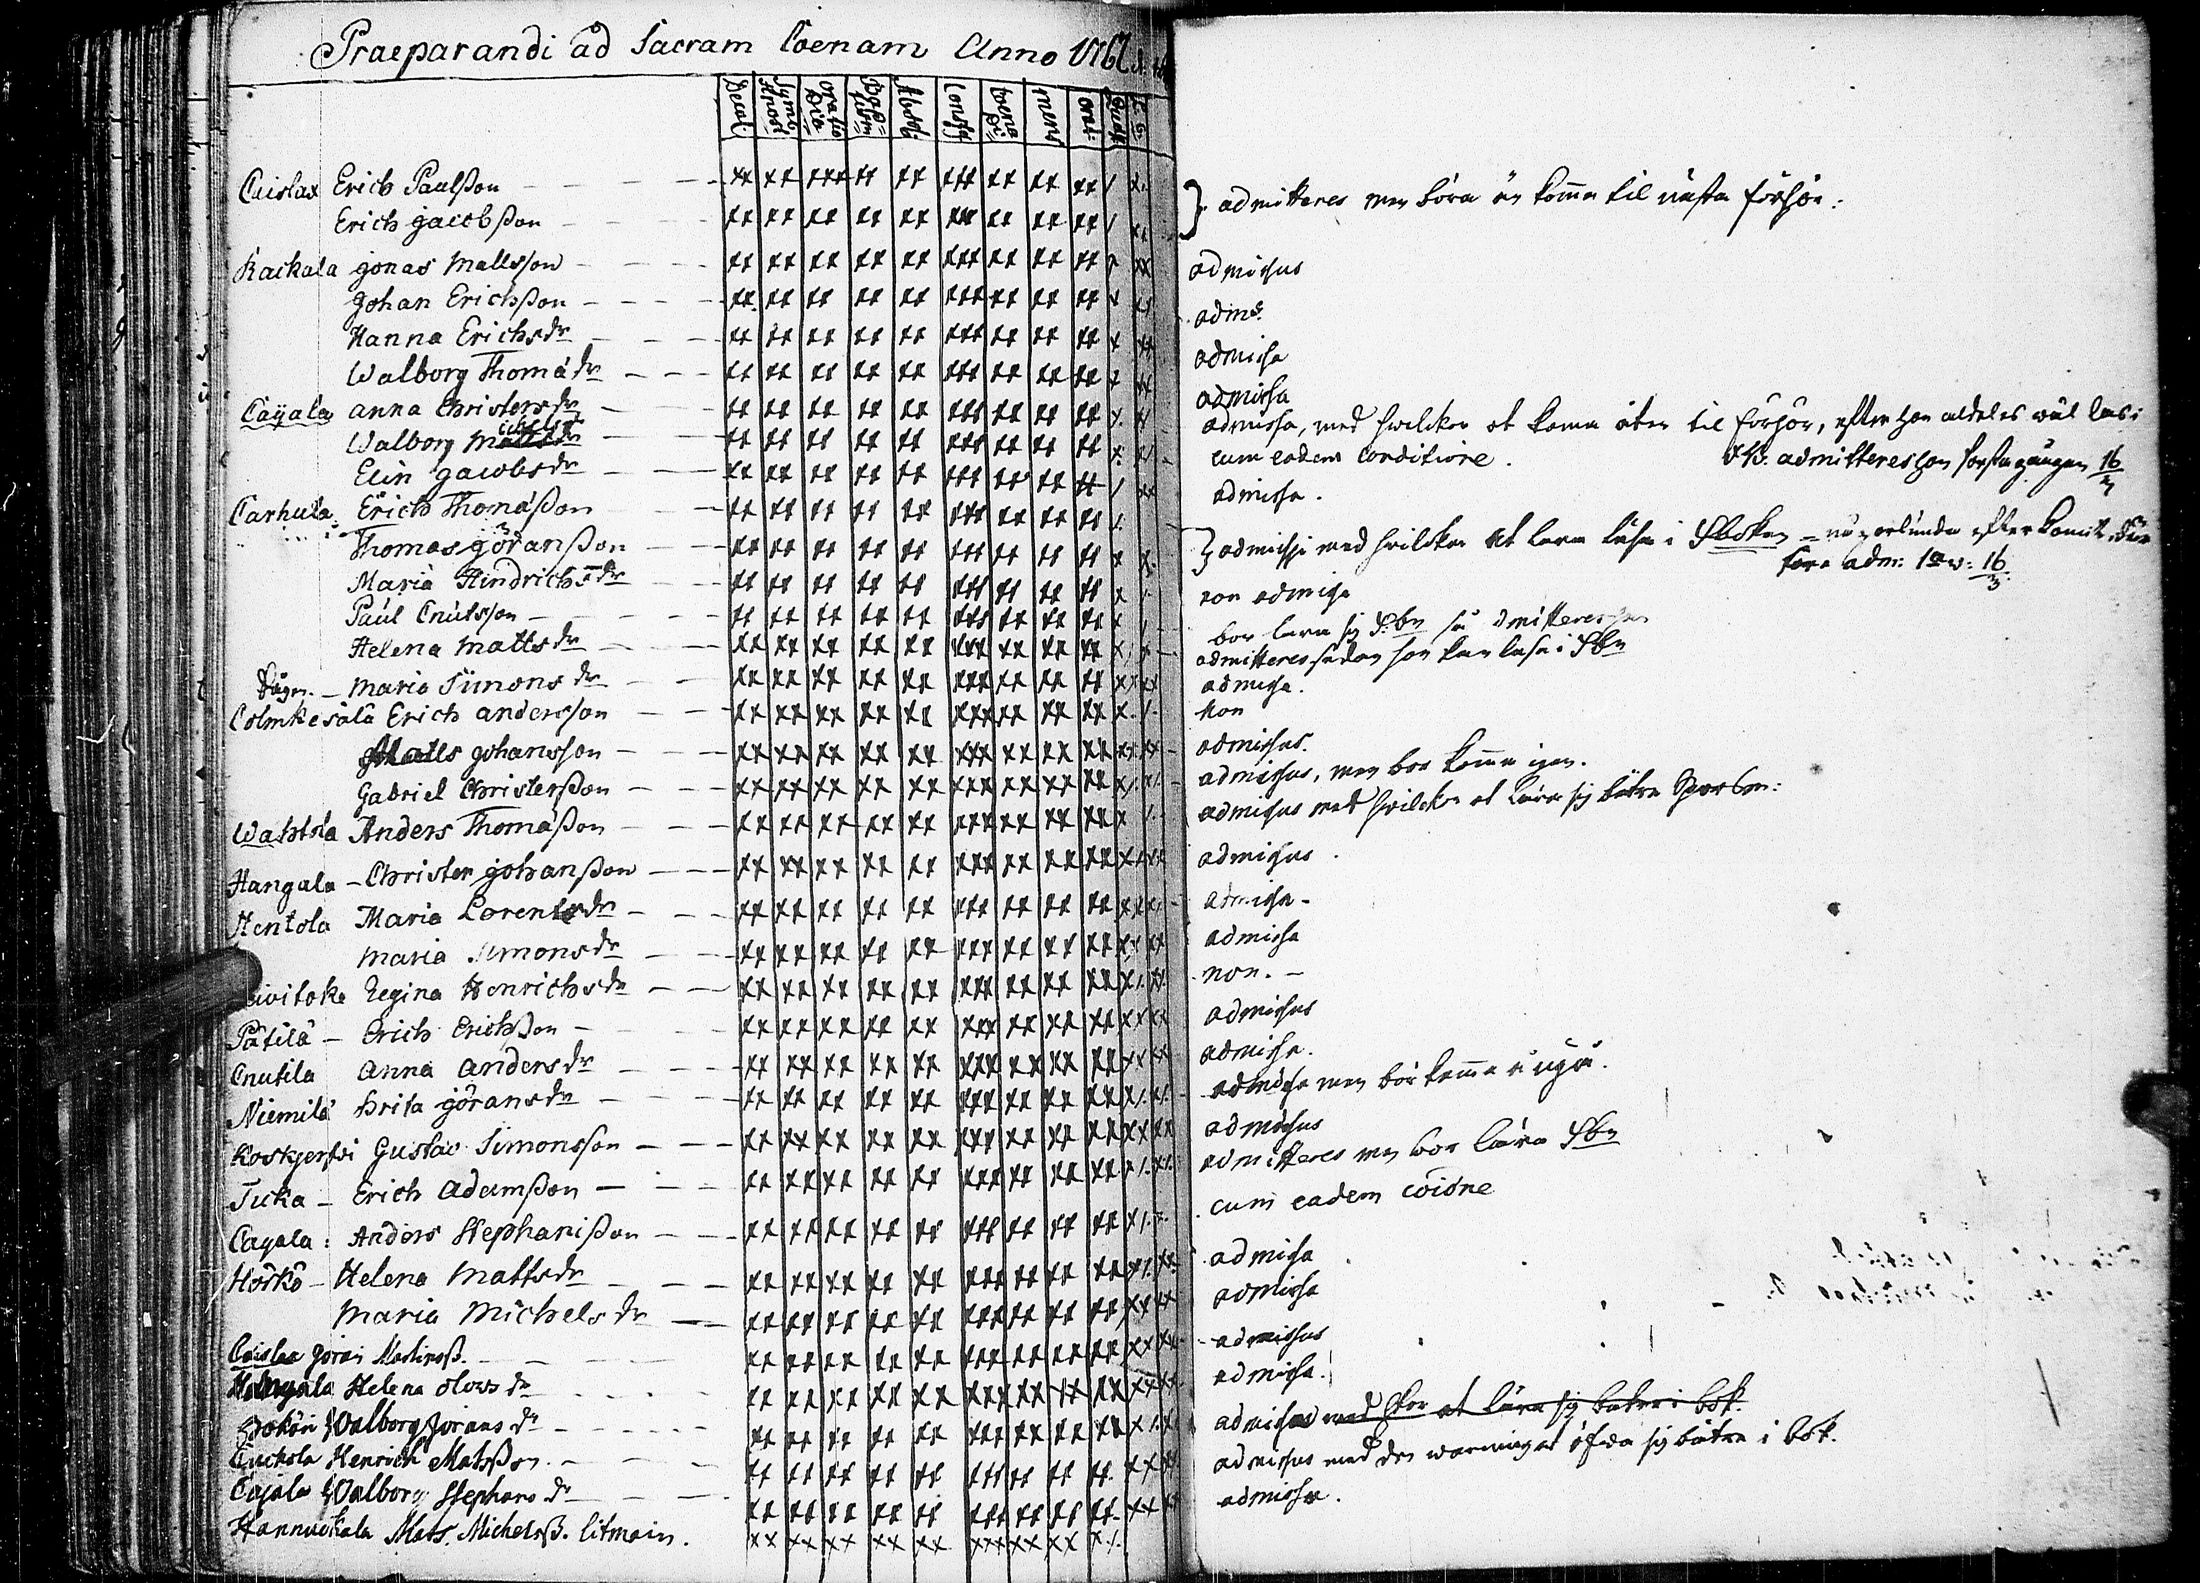 Praeparandi ad Sacram Coenam Anno 1767
Decal: Symb: Athnas: Oratio Dia Bap=tism Absol: Confess Coena Di= mens orat: Quæst
Cuislax Erich Paulsson xx xx xxx xx xx xxx xx xx xx / x. } admitteres men böra än komma til nästa förhör:
Erich Jacobsson xx xx xx xx xx xxx xx xx xx / xx
Kackala Jonas Mattsson xx xx xx xx xx xxx xx xx xx x xx admissus
Johan Erichsson xx xx xx xx xx xxx xx xx xx x xx adms.
Hanna Erichsdr xx xx xx xx xx xxx xx xx xx x xx admissa
Walborg Thomædr xx xx xx xx xx xxx xx xx xx x xx admissa
Caÿala Anna Christersdr xx xx xx xx xx xxx xx xx xx x. x admissa, med hwilckor at komma åter til förhör, efter hon aldeles wäl läs:
Walborg Michelsdr xx xx xx xx xx xxx xx xx xx x. x/. cum eadem conditione. NB. admitteres hon första gången 16/
Elin Jacobsdr xx xx xx xx xx xxx xx xx xx / xx admissa.
Carhula Erich Thomasson xx xx xx xx xx xxx xx xx xx /. } admissi med hwilckor at lära läsa i Sboken
Thomas Göransson xx xx xx xx xx xxx xx xx xx x x. före adm: 16/3.
Maria Hindrichsdr xx xx xx xx xx xxx xx xx xx x / non admissa
Paul Cnutsson xx xx xx xx xx xxx xx xx xx x / bör lära sig S:bn så admitteres han
Helena Mattsdr xx xx xx xx xx xxx xx xx xx x / x admitteres sedan hon kan läsa i Sbn
Maria Simonsdr xx xx xx xx xx xxx xx xx xx xx xx admissa.
Colmkesälä Erich Andersson xx xx xx xx xx xxx xx xx xx x. /. Non
Matts Johansson xx xx xx xx xx xxx xx xx xx xx xx admissus.
Gabriel Christersson xx xx xx xx xx xxx xx xx xx x/. x/. admissus, men bör komma igen.
Wahtola Anders Thomasson xx xx xx xx xx xxx xx xx xx x /. admissus med hwilckor at lära sig bättre
Hangala – Christer Johansson xx xx xx xx xx xxx xx xx xx xx xx admissus.
Hentola Maria Lorentsdr xx xx xx xx xx xxx xx xx xx xx x/. admissa.
Maria Simonsdr xx xx xx xx xx xxx xx xx xx xx xx admissa
Regina Henrichsdr xx xx xx xx xx xxx xx xx xx x/. xx. non. –
Pätilä – Erich Erichsson xx xx xx xx xx xxx xx xx xx xx xx admissus
Cnutila Anna Andersdr xx xx xx xx xx xxx xx xx xx xx xx admissa.
Niemilä Brita Göransdr xx xx xx xx xx xxx xx xx xx x/. x/. admissa men bör komma
Koskjerfvi Gustav Simonsson xx xx xx xx xx xxx xx xx xx xx xx admissus
Tuka – Erich Adamsson xx xx xx xx xx xxx xx xx xx x/. x/. admitteres men bör lära Sbn
Cayala: Anders Stephansson xx xx xx xx xx xxx xx xx xx x/. x. cum eadem coidne
Hörkö – Helena Mattsdr xx xx xx xx xx xxx xx xx xx x/. xx. admissa
Maria Michelsdr xx xx xx xx xx xxx xx xx xx xx xx admissa
Cuislax Göran Martinss. xx xx xx xx xx xxx xx xx xx xx xx admissus
Hangala Helena Olovsdr xx xx xx xx xx xxx xx xx xx xx xx admissa.
Walborg Göransdr xx xx xx xx xx xxx xx xx xx x/. x/. admissa med at lära sig bättre i bok.
Cuckola Henrich Matsson xx xx xx xx xx xxx xx xx xx. xx xx admissus med den warningat öfwa sig bättre i bok.
Cajala Walborg Stephansdr xx xx xx xx xx xxx xx xx xx xx xx admissa.
Hannuckala Mats Michelss. litmain. xx xx xx xx xx xxx xx xx x./.